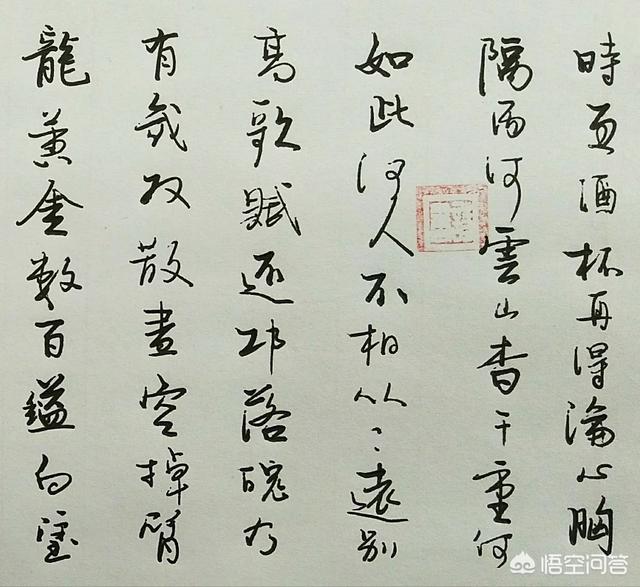 龍黃金數百鎰白璧
有幾双散盡空掉臂
高歌賦還邛落魄乃
如此何人不相从遠別
隔兩河雲山杳千重何
時更酒杯再得論心胸
悟空问答